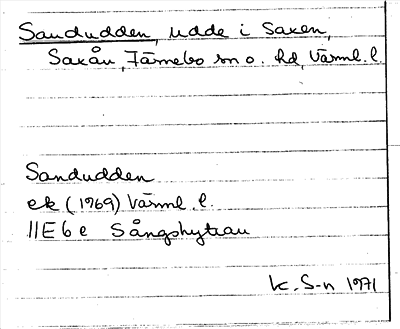 Sandudden, udde i Saxen,
Saxån, Färnebo sn o. hd, Värml. l.
Sandudden
ek (1969) Värml. l.
11E 6 e Sångshyttan
K. S-n 1971